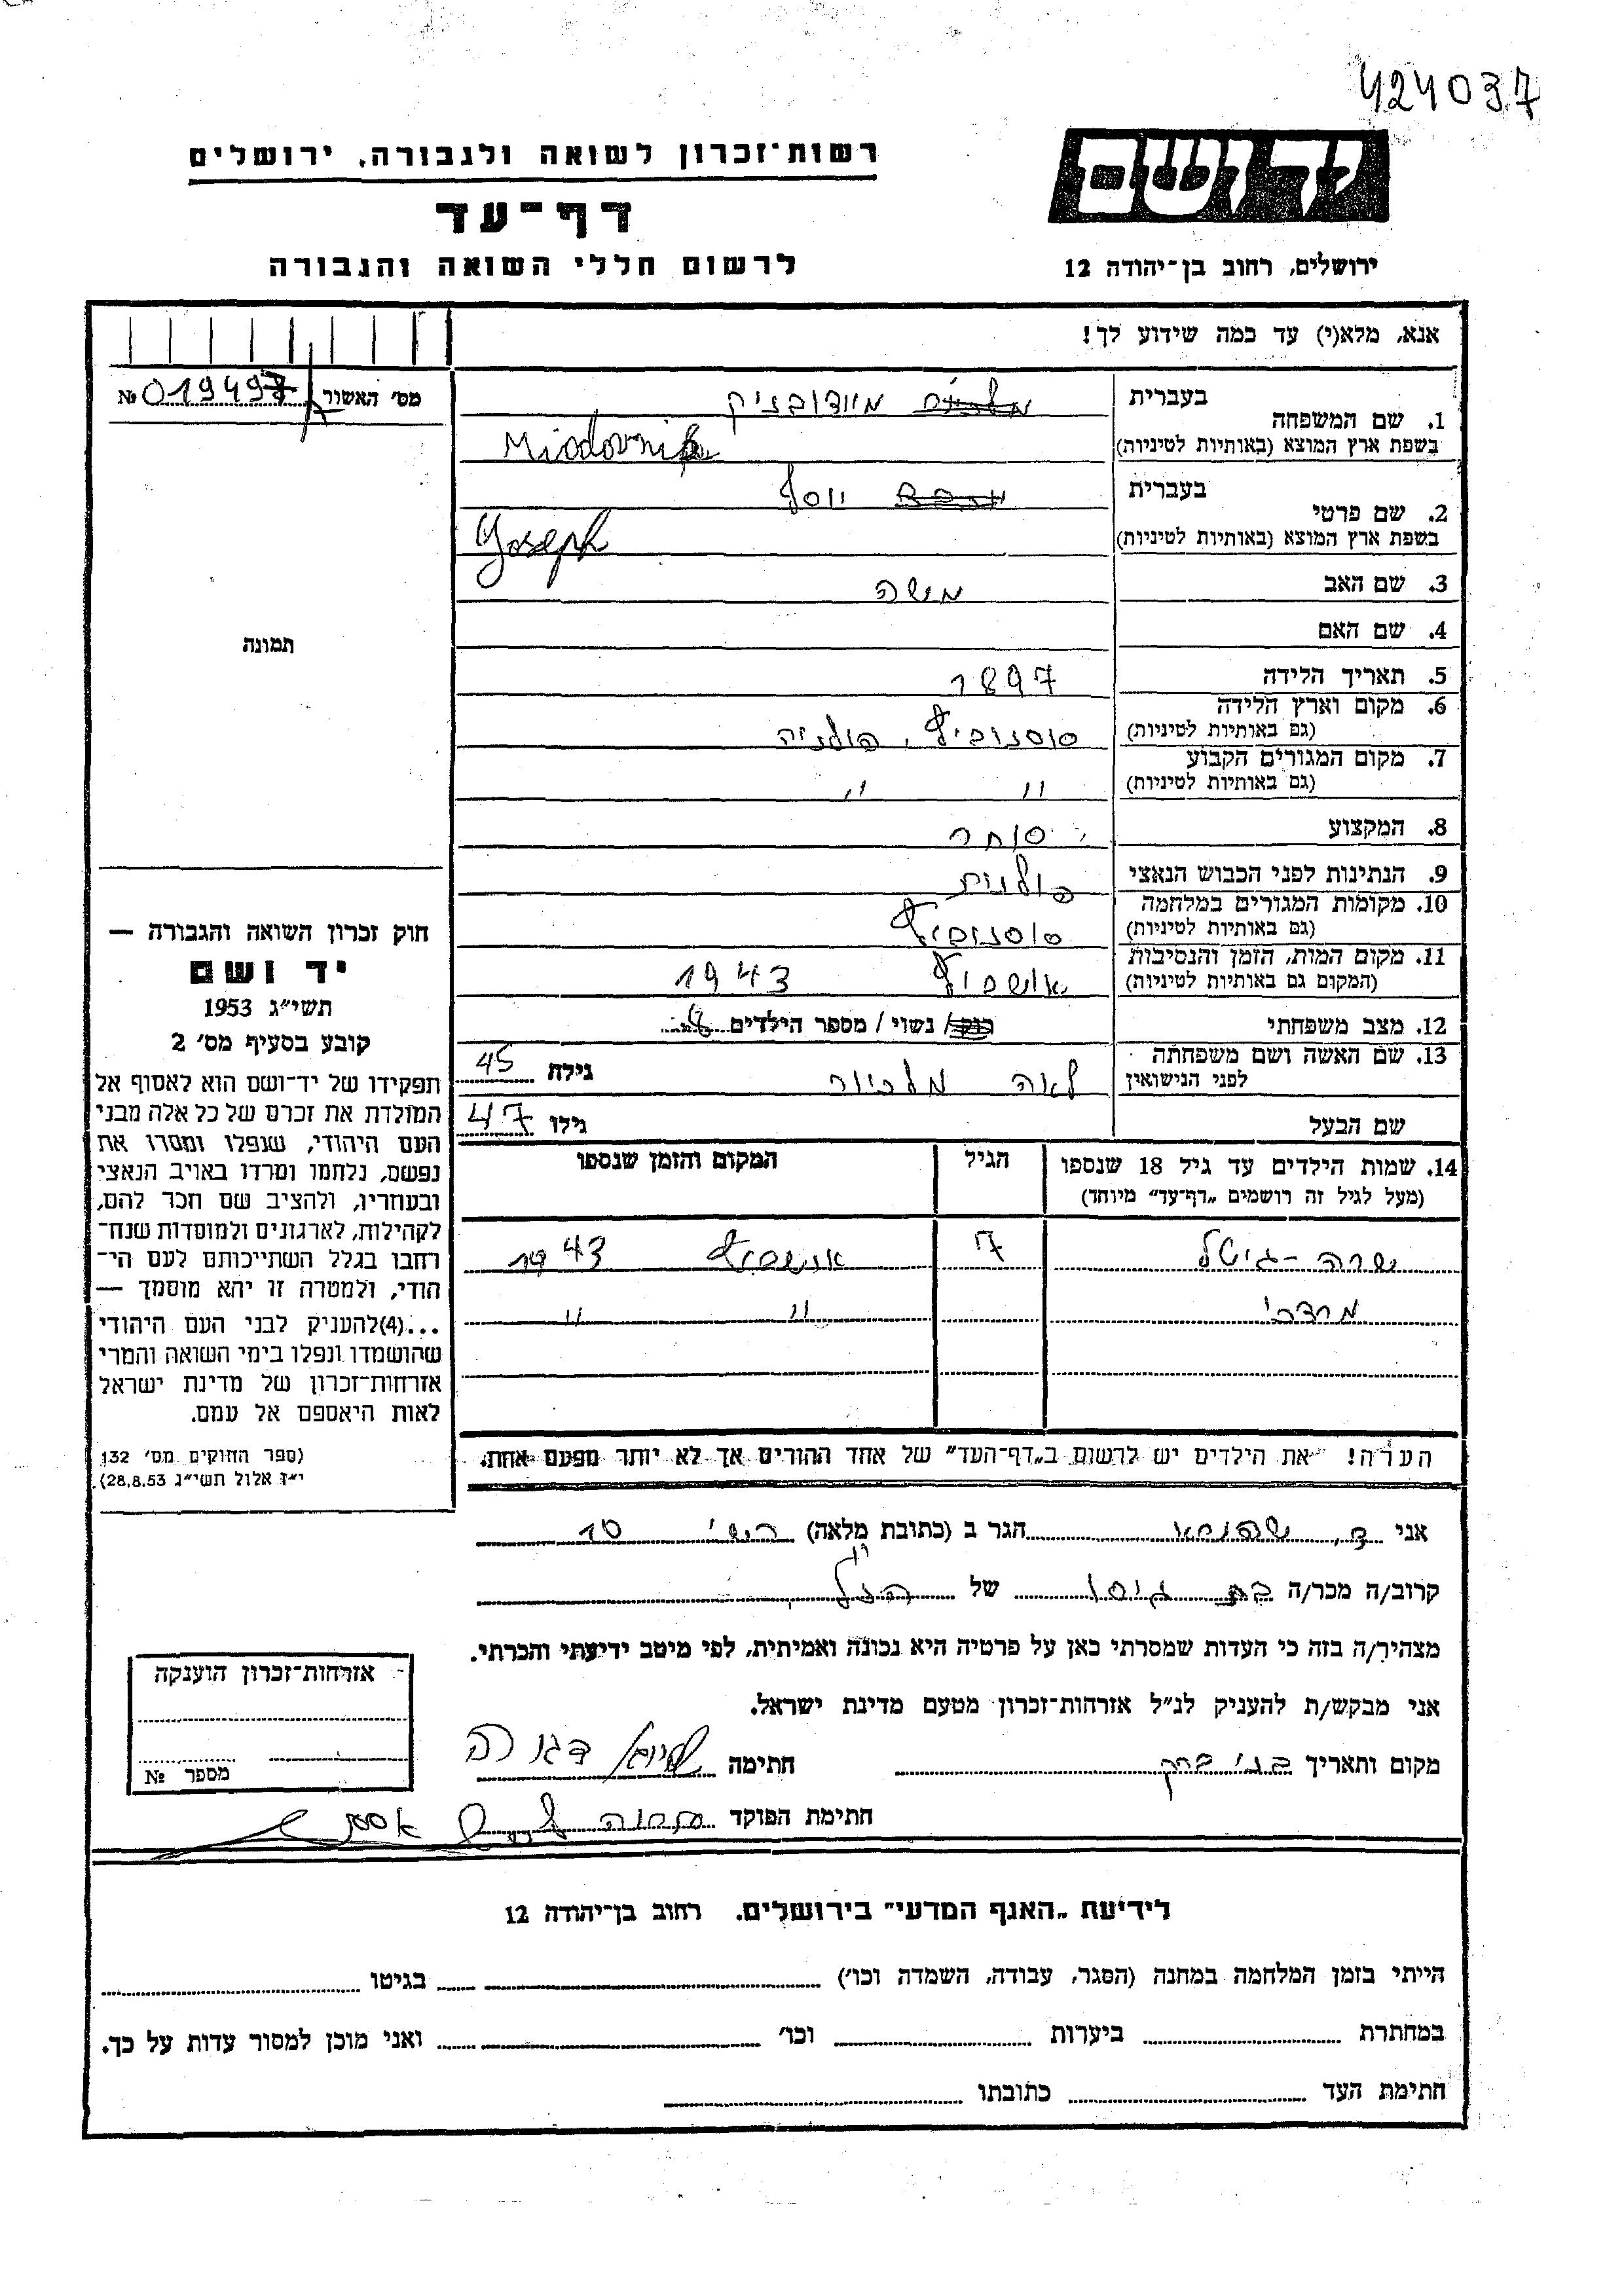 424037
יד ושם
רשות־זכרון לשואה ולגבורה, ירושלים
דף־עד
לרשום חללי השואה והגבורה
ירושלים, רחוב בן־יהודה 12
אנא, מלא(י) עד כמה שידוע לך!
מס׳ האשור № 019497
תמונה
1. שם המשפחה
בעברית מיודובניק
בשפת ארץ המוצא (באותיות לטיניות) Miodovnik
2. שם פרטי
בעברית יוסף
בשפת ארץ המוצא (באותיות לטיניות) Yoseph
3. שם האב משה
4. שם האם
5. תאריך הלידה 1897
6. מקום וארץ הלידה סוסנוביץ, פולניה
(גם באותיות לטיניות)
7. מקום המגורים הקבוע
(גם באותיות לטיניות) " "
8. המקצוע סוחר
9. הנתינות לפני הכבוש הנאצי פולנית
10. מקומות המגורים במלחמה
(גם באותיות לטיניות) סוסנוביץ
11. מקום המות, הזמן והנסיבות
(המקום גם באותיות לטיניות) אושוויץ 1943
12. מצב משפחתי רווק / נשוי / מספר הילדים
13. שם האשה ושם משפחתה
לפני הנישואין לאה גילה 45
שם הבעל גילו 47
14. שמות הילדים עד גיל 18 שנספו הגיל המקום והזמן שנספו
(מעל לגיל זה רושמים „דף־עד״ מיוחד)
שרה-גיטל 7 אושוויץ 1943
מרדכי " "
הערה! את הילדים יש לרשום ב„דף־העד״ של אחד ההורים אך לא יותר מפעם אחת.
חוק זכרון השואה והגבורה —
יד ושם
תשי״ג 1953
קובע בסעיף מס׳ 2
תפקידו של יד־ושם הוא לאסוף אל
המולדת את זכרם של כל אלה מבני
העם היהודי, שנפלו ומסרו את
נפשם, נלחמו ומרדו באויב הנאצי
ובעוזריו, ולהציב שם וזכר להם,
לקהילות, לארגונים ולמוסדות שנח־
רבו בגלל השתייכותם לעם הי־
הודי, ולמטרה זו יהא מוסמך —
...(4)להעניק לבני העם היהודי
שהושמדו ונפלו בימי השואה והמרי
אזרחות־זכרון של מדינת ישראל
לאות היאספם אל עמם.
(ספר החוקים מס׳ 132
י״ז אלול תשי״ג 28.8.53).
אני ד. הגר ב (כתובת מלאה) 10
קרוב/ה מכר/ה בת גיסו של הנ״ל
מצהיר/ה בזה כי העדות שמסרתי כאן על פרטיה היא נכונה ואמיתית, לפי מיטב ידיעתי והכרתי.
אני מבקש/ת להעניק לנ״ל אזרחות־זכרון מטעם מדינת ישראל.
מקום ותאריך בני ברק חתימה דבורה
חתימת הפוקד
אזרחות־זכרון הוענקה
מספר №
לידיעת „האגף המדעי״ בירושלים. רחוב בן־יהודה 12
הייתי בזמן המלחמה במחנה (הסגר, עבודה, השמדה וכו׳) בגיטו
במחתרת ביערות וכו׳ ואני מוכן למסור עדות על כך.
חתימת העד כתובתו